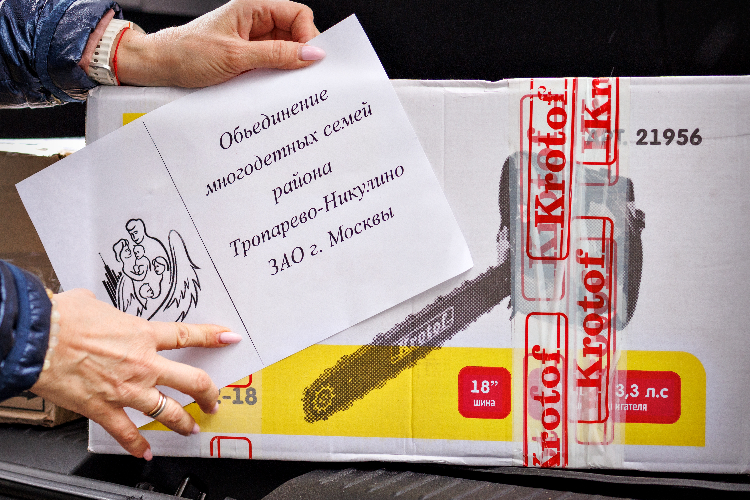 Объединение
многодетных семей
района
Тропарево-Никулино
ЗАО г. Москвы
21956
Krotof
Krotof
Krotof
Krotof
Krotof
-18
18”
шина
3,3 л.с